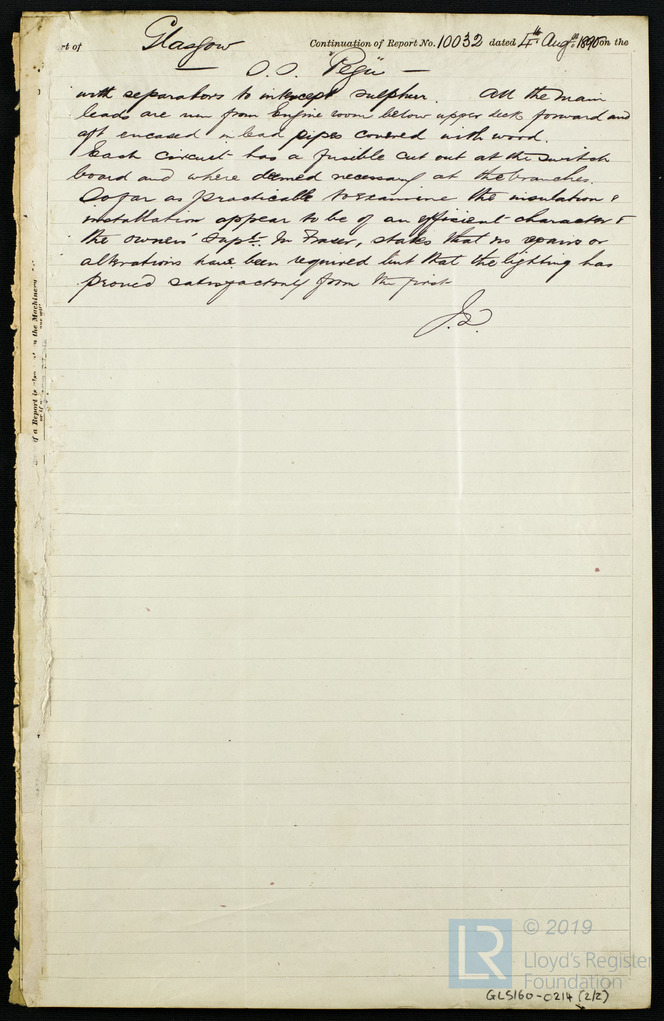 rt of Glasgow Continuation of Report No. 10032 dated 4th Augt. 1890 on the
S.S. "Pegu" —
with separators to intercept sulphur. All the main
leads are run from Engine room below upper deck forward and
aft encased in lead pipes covered with wood.
Each circuit has a fusible cut out at the switch
board and where deemed necessary at the branches.
So far as practicable to examine the insulation &
installation appear to be of an efficient character &
the owners' Supt. Mr Fraser, states that no repairs or
alterations have been required but that the lighting has
proved satisfactory from the first
of a Report is also the Machinery
© 2019
LR
Lloyd's Register
Foundation
GLS160-0214 (2/2)